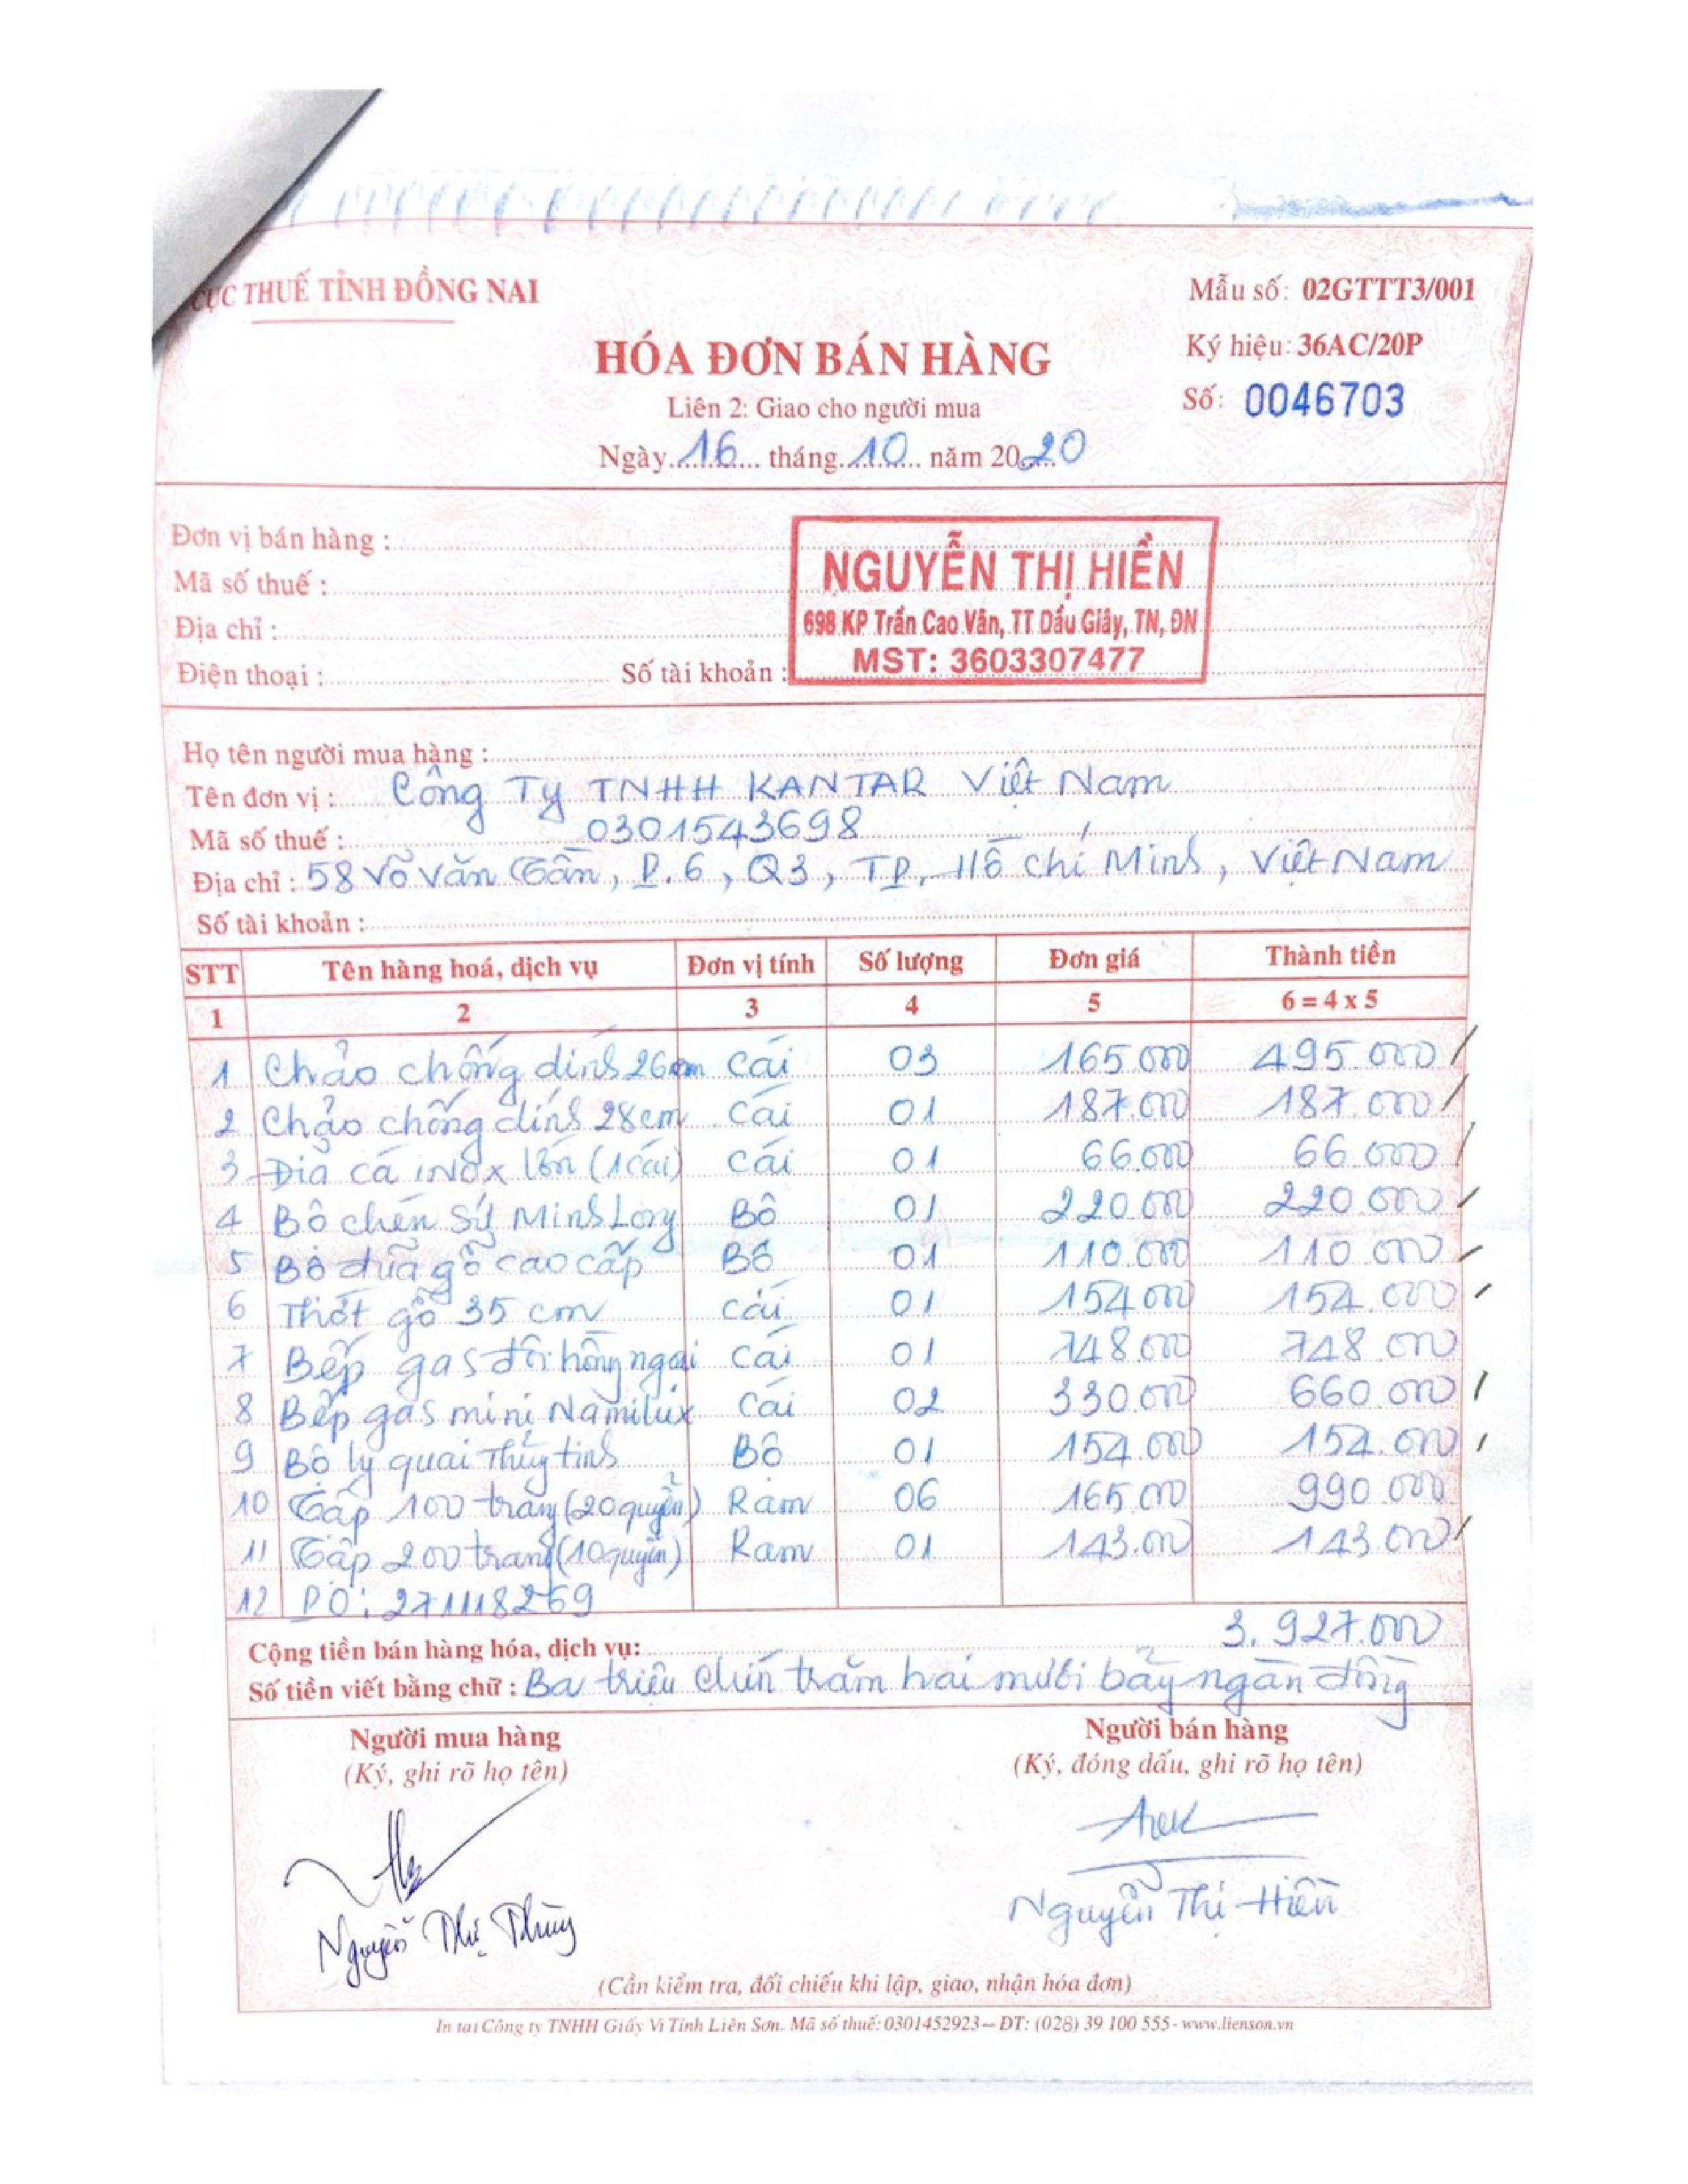 CỤC THUẾ TỈNH ĐỒNG NAI
Mẫu số: 02GTTT3/001
HÓA ĐƠN BÁN HÀNG
Ký hiệu: 36AC/20P
Liên 2: Giao cho người mua
Số: 0046703
Ngày 16 tháng 10 năm 2020
Đơn vị bán hàng :
Mã số thuế :
Địa chỉ :
Điện thoại : Số tài khoản :
NGUYỄN THỊ HIỀN
698 KP Trần Cao Vân, TT Dầu Giây, TN, ĐN
MST: 3603307477
Họ tên người mua hàng :
Tên đơn vị : Công Ty TNHH KANTAR Việt Nam
Mã số thuế : 0301543698
Địa chỉ : 58 Võ Văn Tần, P.6, Q3, TP. Hồ Chí Minh, Việt Nam
Số tài khoản :
STT Tên hàng hoá, dịch vụ Đơn vị tính Số lượng Đơn giá Thành tiền
1 2 3 4 5 6 = 4 x 5
1 Chảo chống dính 26cm Cái 03 165.000 495.000
2 Chảo chống dính 28cm Cái 01 187.000 187.000
3 Dĩa cá inox lớn (1 cái) Cái 01 66.000 66.000
4 Bộ chén sứ Minh Long Bộ 01 220.000 220.000
5 Bộ đũa gỗ cao cấp Bộ 01 110.000 110.000
6 Thớt gỗ 35 cm Cái 01 154.000 154.000
7 Bếp gas đôi hồng ngoại Cái 01 748.000 748.000
8 Bếp gas mini Namilux Cái 02 330.000 660.000
9 Bộ ly quai Thủy tinh Bộ 01 154.000 154.000
10 Tập 100 trang (20 quyển) Ram 06 165.000 990.000
11 Tập 200 trang (10 quyển) Ram 01 143.000 143.000
12 PO: 271118269
Cộng tiền bán hàng hóa, dịch vụ: 3.927.000
Số tiền viết bằng chữ : Ba triệu chín trăm hai mươi bảy ngàn đồng
Người mua hàng Người bán hàng
(Ký, ghi rõ họ tên) (Ký, đóng dấu, ghi rõ họ tên)
Nguyễn Thị Hiền
Nguyễn Thị Thùy
(Cần kiểm tra, đối chiếu khi lập, giao, nhận hóa đơn)
In tại Công ty TNHH Giấy Vi Tính Liên Sơn. Mã số thuế: 0301452923 – ĐT: (028) 39 100 555 - www.lienson.vn